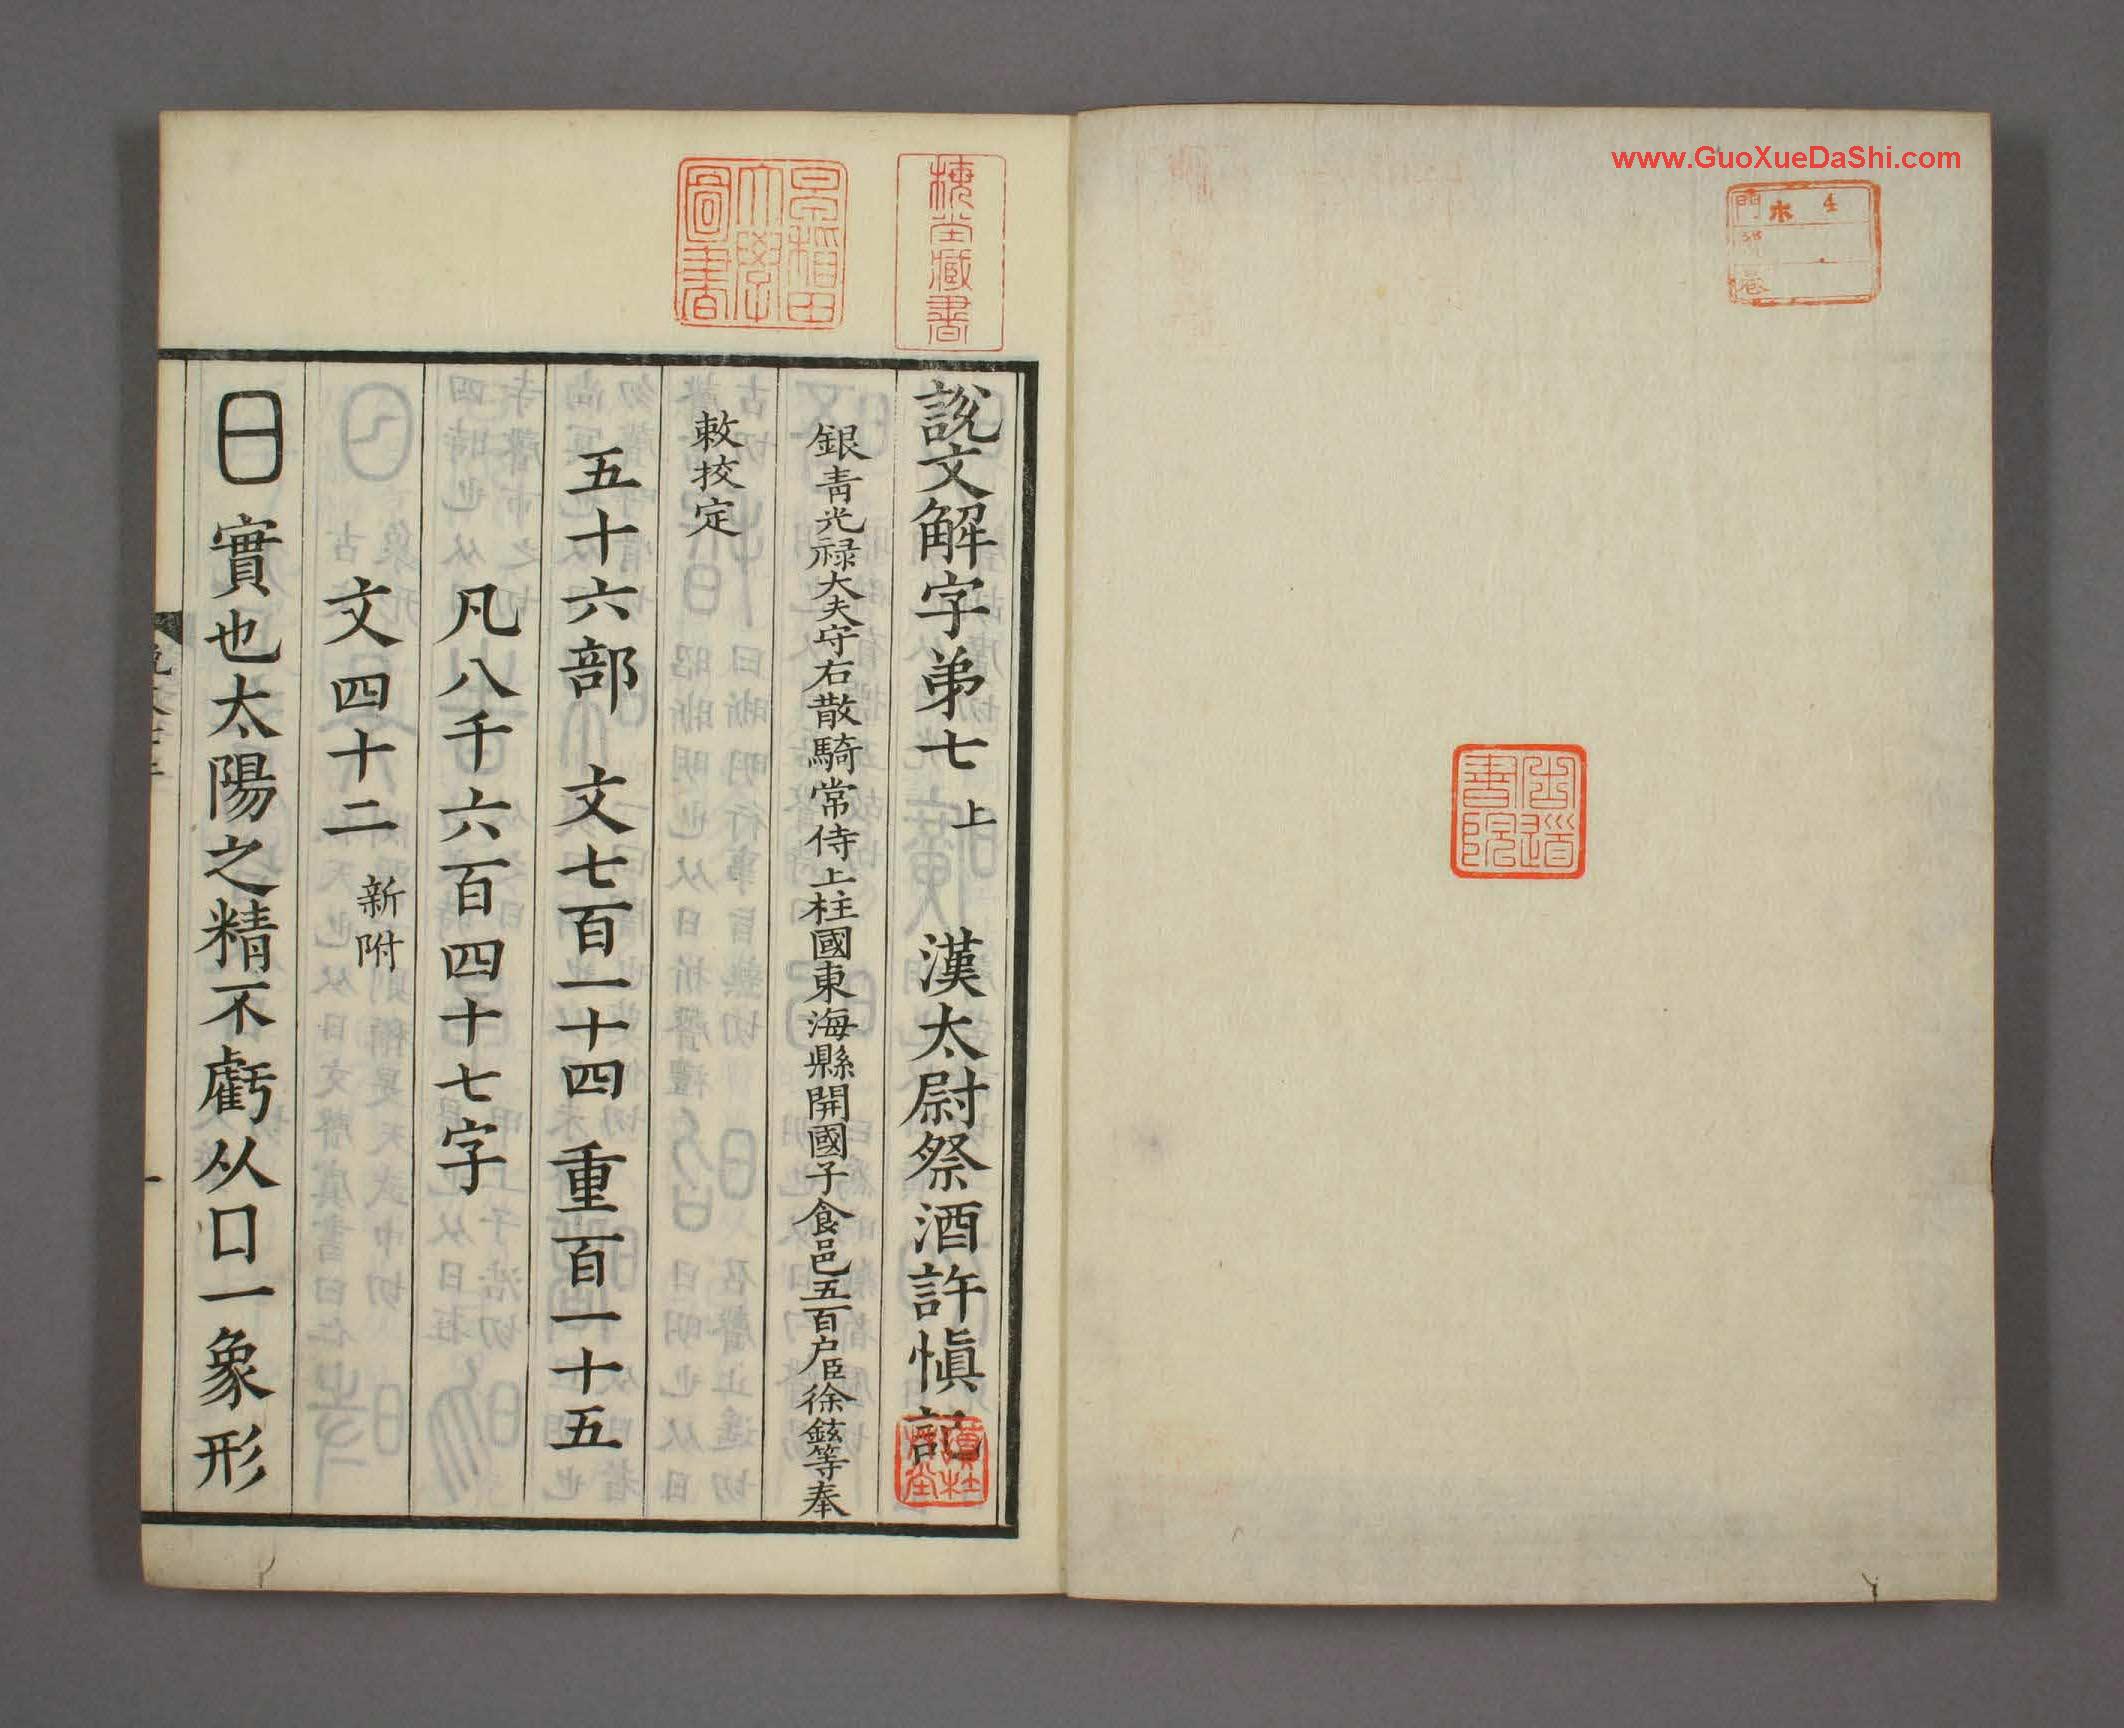 www.GuoXueDaShi.com
門 木 4
說文解字弟七上 漢太尉祭酒許愼記
銀青光禄大夫守右散騎常侍上柱國東海縣開國子食邑五百户臣徐鉉等奉
敕挍定
五十六部 文七百一十四 重百一十五
凡八千六百四十七字
文四十二新附
日 實也太陽之精不虧从口一象形
早稻田大學圖書
槐堂藏書